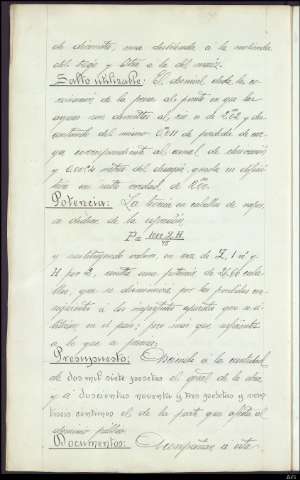 de diametro, una destinada á la molienda
del trigo y otra á la del maiz.
Salto utilizable: El desnivel desde la co-
ronacion de la presa al punto en que las
aguas son devueltas al rio es de y des-
contando del mismo 0'11 de perdida de car-
ga correspondiente al canal de derivacion
y metros del desagüe, queda en defini-
tiva un salto de
Potencia: La teórica en caballos de vapor,
se deduce de la expresion
P = 1000 Q H
75
y sustituyendo valores, en vez de Q, 1 y
H por 2, resulta una potencia de 2,66 caba-
llos, que se disminuirá, por las perdidas con-
siguientes á los imperfectos aparatos que se u-
tilizan en el pais; pero mas que suficiente
á lo que se
Presupuesto: Asciende á la cantidad
de dos mil siete pesetas el gral. de la obra
y á doscientas noventa y tres pesetas y
céntimos el de la parte que afecta al
dominio público.
Documentos: Acompañan á esta